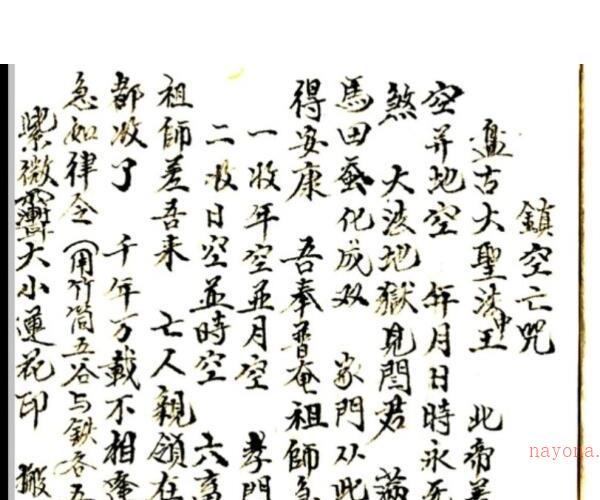 鎮空亡咒
盘古大聖法中王 北帝
空并地空 年月日時永无
煞 大法地獄見閻君 满
馬田蚕化成双 家門从此
得安康 吾奉普庵祖師急
一收年空並月空 孝門
二收日空並時空 六畜
祖師差吾来 亡人親領在
都收了 千年万載不相逢
急如律令 (用竹筒五谷与鉄各五
紫微 大小蓮花印 撒
nayona.